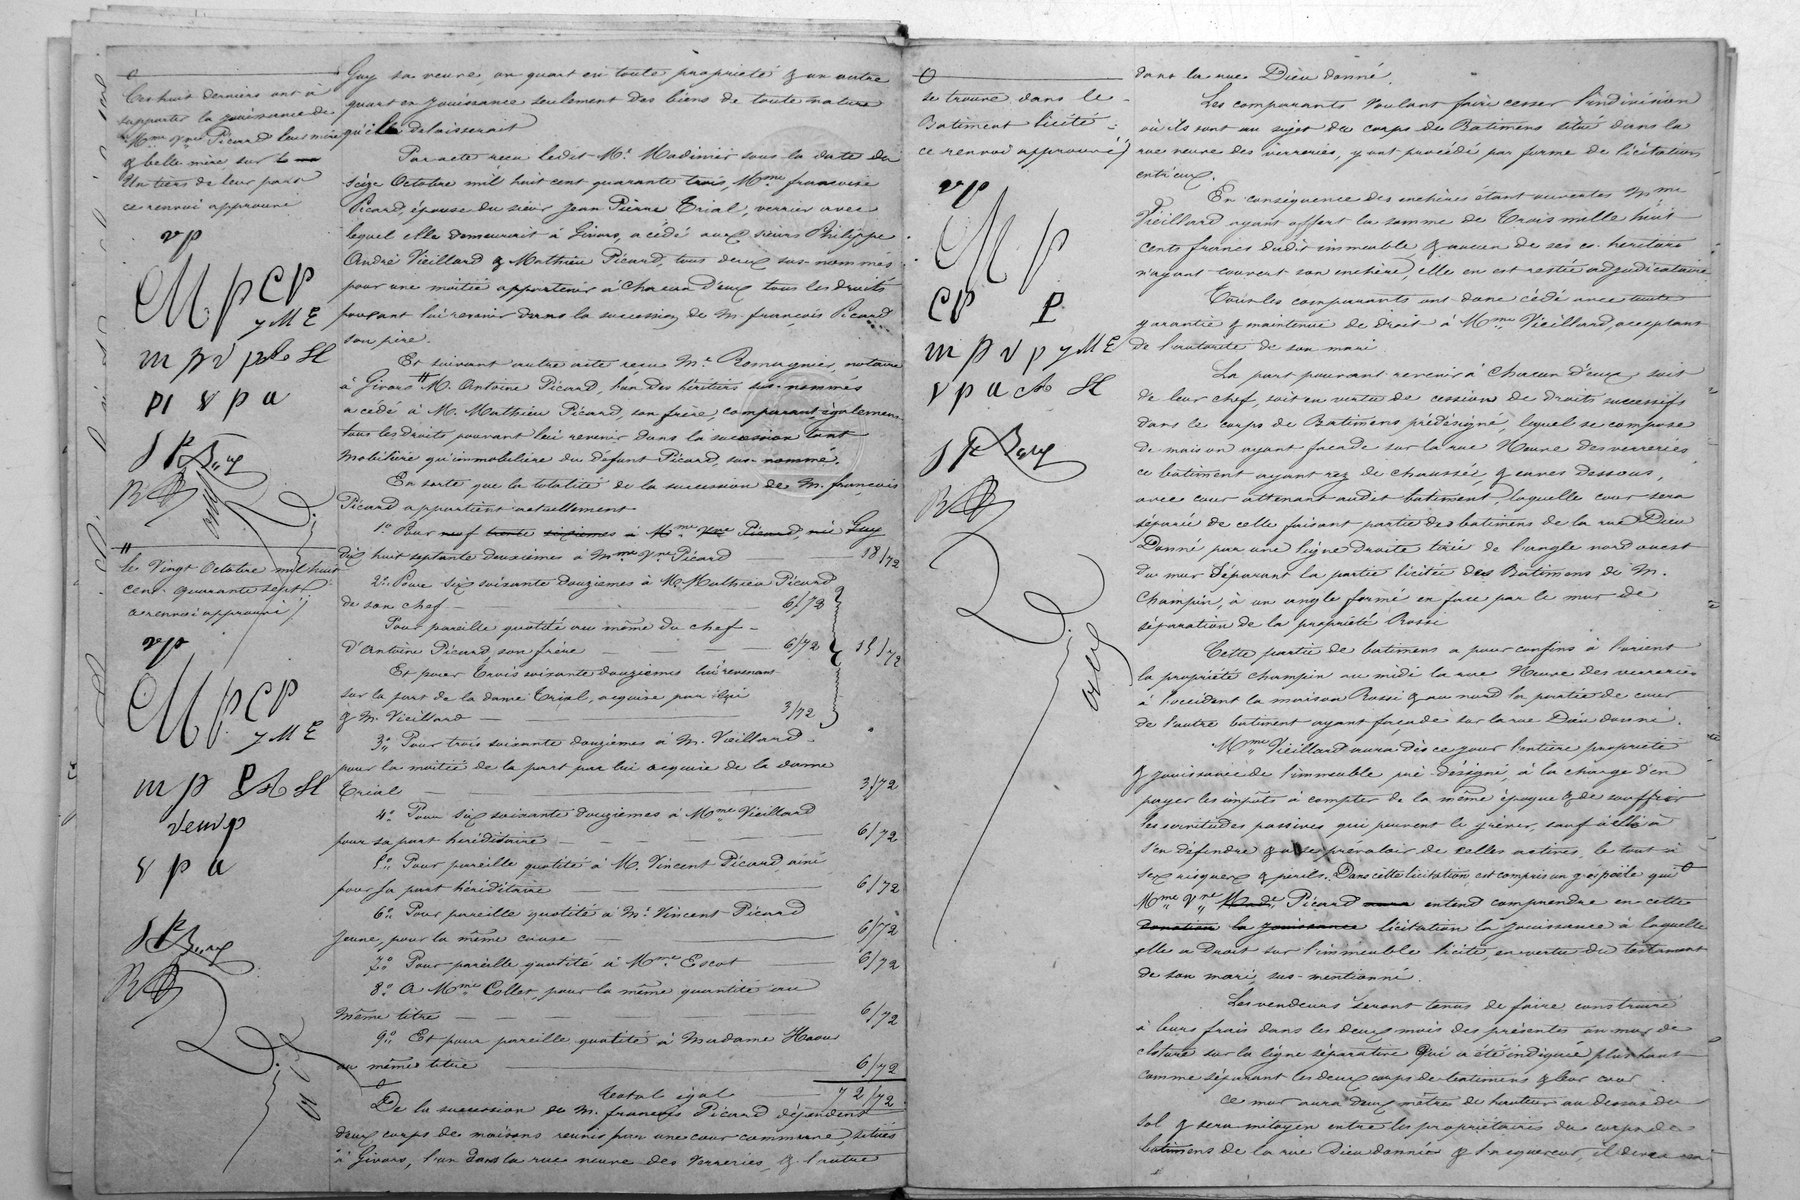 Ces huit derniers ont à
supporter la jouissance de
Mme Vve Picard leur mère
& belle mère sur le
Un tiers de leur part
ce renvoi approuvé
vp
M p CP
y M E
m p v p St
p1 v p a
le Vingt Octobre mil huit
cent quarante sept
ce renvoi approuvé
vp
M p CP
y M E
m p P St
veuv p
v p a
Guy sa veuve, un quart en toute propriété & un autre
quart en jouissance seulement des biens de toute nature
qu'il delaisserait
Par acte reçu ledit Me Madinier sous la date du
seize Octobre mil huit cent quarante trois, Mme françoise
Picard, épouse du sieur Jean Pierre Trial, verrier avec
lequel elle demeurait à Givors, a cédé aux sieurs Philippe
André Vieillard & Mathieu Picard, tous deux sus-nommés
pour une moitié appartenir à chacun d'eux tous les droits
pouvant lui revenir dans la succession de M. françois Picard
son père.
Et suivant autre acte reçu Me Romagnier, notaire
à Givors # M. Antoine Picard, l'un des héritiers sus-nommés
a cédé à M. Mathieu Picard, son frère, comparant également
tous les droits pouvant lui revenir dans la succession tant
mobiliére qu'immobiliére du défunt Picard, sus-nommé.
En sorte que la totalité de la succession de M. françois
Picard appartient actuellement
1º Pour neuf trente sixièmes à Mme Vve Picard, née Guy
dix huit septante deuxièmes à Mme Vve Picard 18/72
2º Pour six soixante douzièmes à M. Mathieu Picard
de son chef 6/72
Pour pareille quotité au même du chef
d'Antoine Picard son frère 6/72 15/72
Et pour trois soixante douzièmes lui revenant
sur la part de la dame Trial, acquise par lui
& M. Vieillard 3/72
3º Pour trois soixante douzièmes à M. Vieillard
pour la moitié de la part par lui acquise de la dame
Trial 3/72
4º Pour six soixante douzièmes à Mme Vieillard
pour sa part héréditaire 6/72
5º Pour pareille quotité à M. Vincent Picard ainé
pour sa part héréditaire 6/72
6º Pour pareille quotité à M. Vincent Picard
jeune, pour la même cause 6/72
7º Pour pareille quotité à Mme Escot 6/72
8º A Mme Collet, pour la même quantité au
même titre 6/72
9º Et pour pareille quotité à Madame Haour
au même titre 6/72
total égal 72/72
De la succession de M. françois Picard dépendent
deux corps de maisons reunis par une cour commune, situés
à Givors, l'un dans la rue neuve des Verreries, & l'autre
se trouve dans le
Batiment licité
ce renvoi approuvé
vp
M p
CP P
m p v p y M E
v p a St
dans la rue Dieu donné
Les comparants voulant faire cesser l'indivision
où ils sont au sujet du corps de Batimens situé dans la
rue neuve des verreries, y ont procédé par forme de licitation
entr'eux.
En conséquence des enchères étant ouvertes Mme
Vieillard ayant offert la somme de Trois mille huit
cents francs dudit immeuble & aucun de ses co-héritiers
n'ayant couvert son enchère, elle en est restée adjudicataire
Tous les comparants ont donc cédé avec toute
garantie & maintenue de droit à Mme Vieillard, acceptant
de l'autorité de son mari
La part pouvant revenir à chacun d'eux, soit
de leur chef, soit en vertu de cessions de droits successifs
dans le corps de Batimens prédésigné, lequel se compose
de maison ayant facade sur la rue Neuve des verreries,
ce batiment ayant rez de chaussée, & caves dessous,
avec cour attenant audit batiment, laquelle cour sera
séparée de celle faisant partie des batimens de la rue Dieu
Donné, par une ligne droite tirée de l'angle nord ouest
du mur séparant la partie licitée des Batimens de M.
Champin, à un angle formé en face par le mur de
séparation de la propriété Rossi
Cette partie de batimens a pour confins à l'orient
la propriété Champin au midi la rue Neuve des verreries
à l'occident la maison Rossi & au nord la partie de cour
de l'autre batiment ayant façade sur la rue Dieu donné.
Mme Vieillard aura dès ce jour l'entière propriété
& jouissance de l'immeuble pré-désigné, à la charge d'en
payer les impôts à compter de la même époque & de souffrir
les servitudes passives qui peuvent le gréver, sauf à elle à
s'en défendre & à se prévaloir de celles actives, le tout à
ses risques & perils. Dans cette licitation, est compris un poêle qui
Mme Vve Picard entend comprendre en cette
donation la jouissance licitation la jouissance à laquelle
elle a Droit sur l'immeuble licité, en vertu du testament
de son mari, sus-mentionné.
Les vendeurs seront tenus de faire construire
à leurs frais dans les deux mois des présentes un mur de
cloture sur la ligne séparative qui a été indiquée plus haut
comme séparant les deux corps de batimens & leur cour.
Ce mur aura deux mètres de hauteur au dessus du
sol & sera mitoyen entre les propriétaires du corps de
batimens de la rue Dieu donné & l'acquereur, il devra